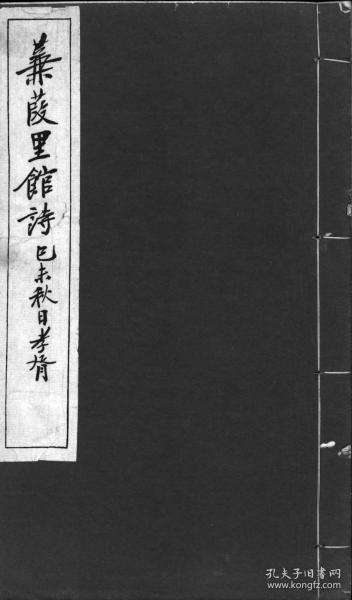 蒹葭里館詩 己未秋日孝胥
孔夫子旧书网
www.kongfz.com